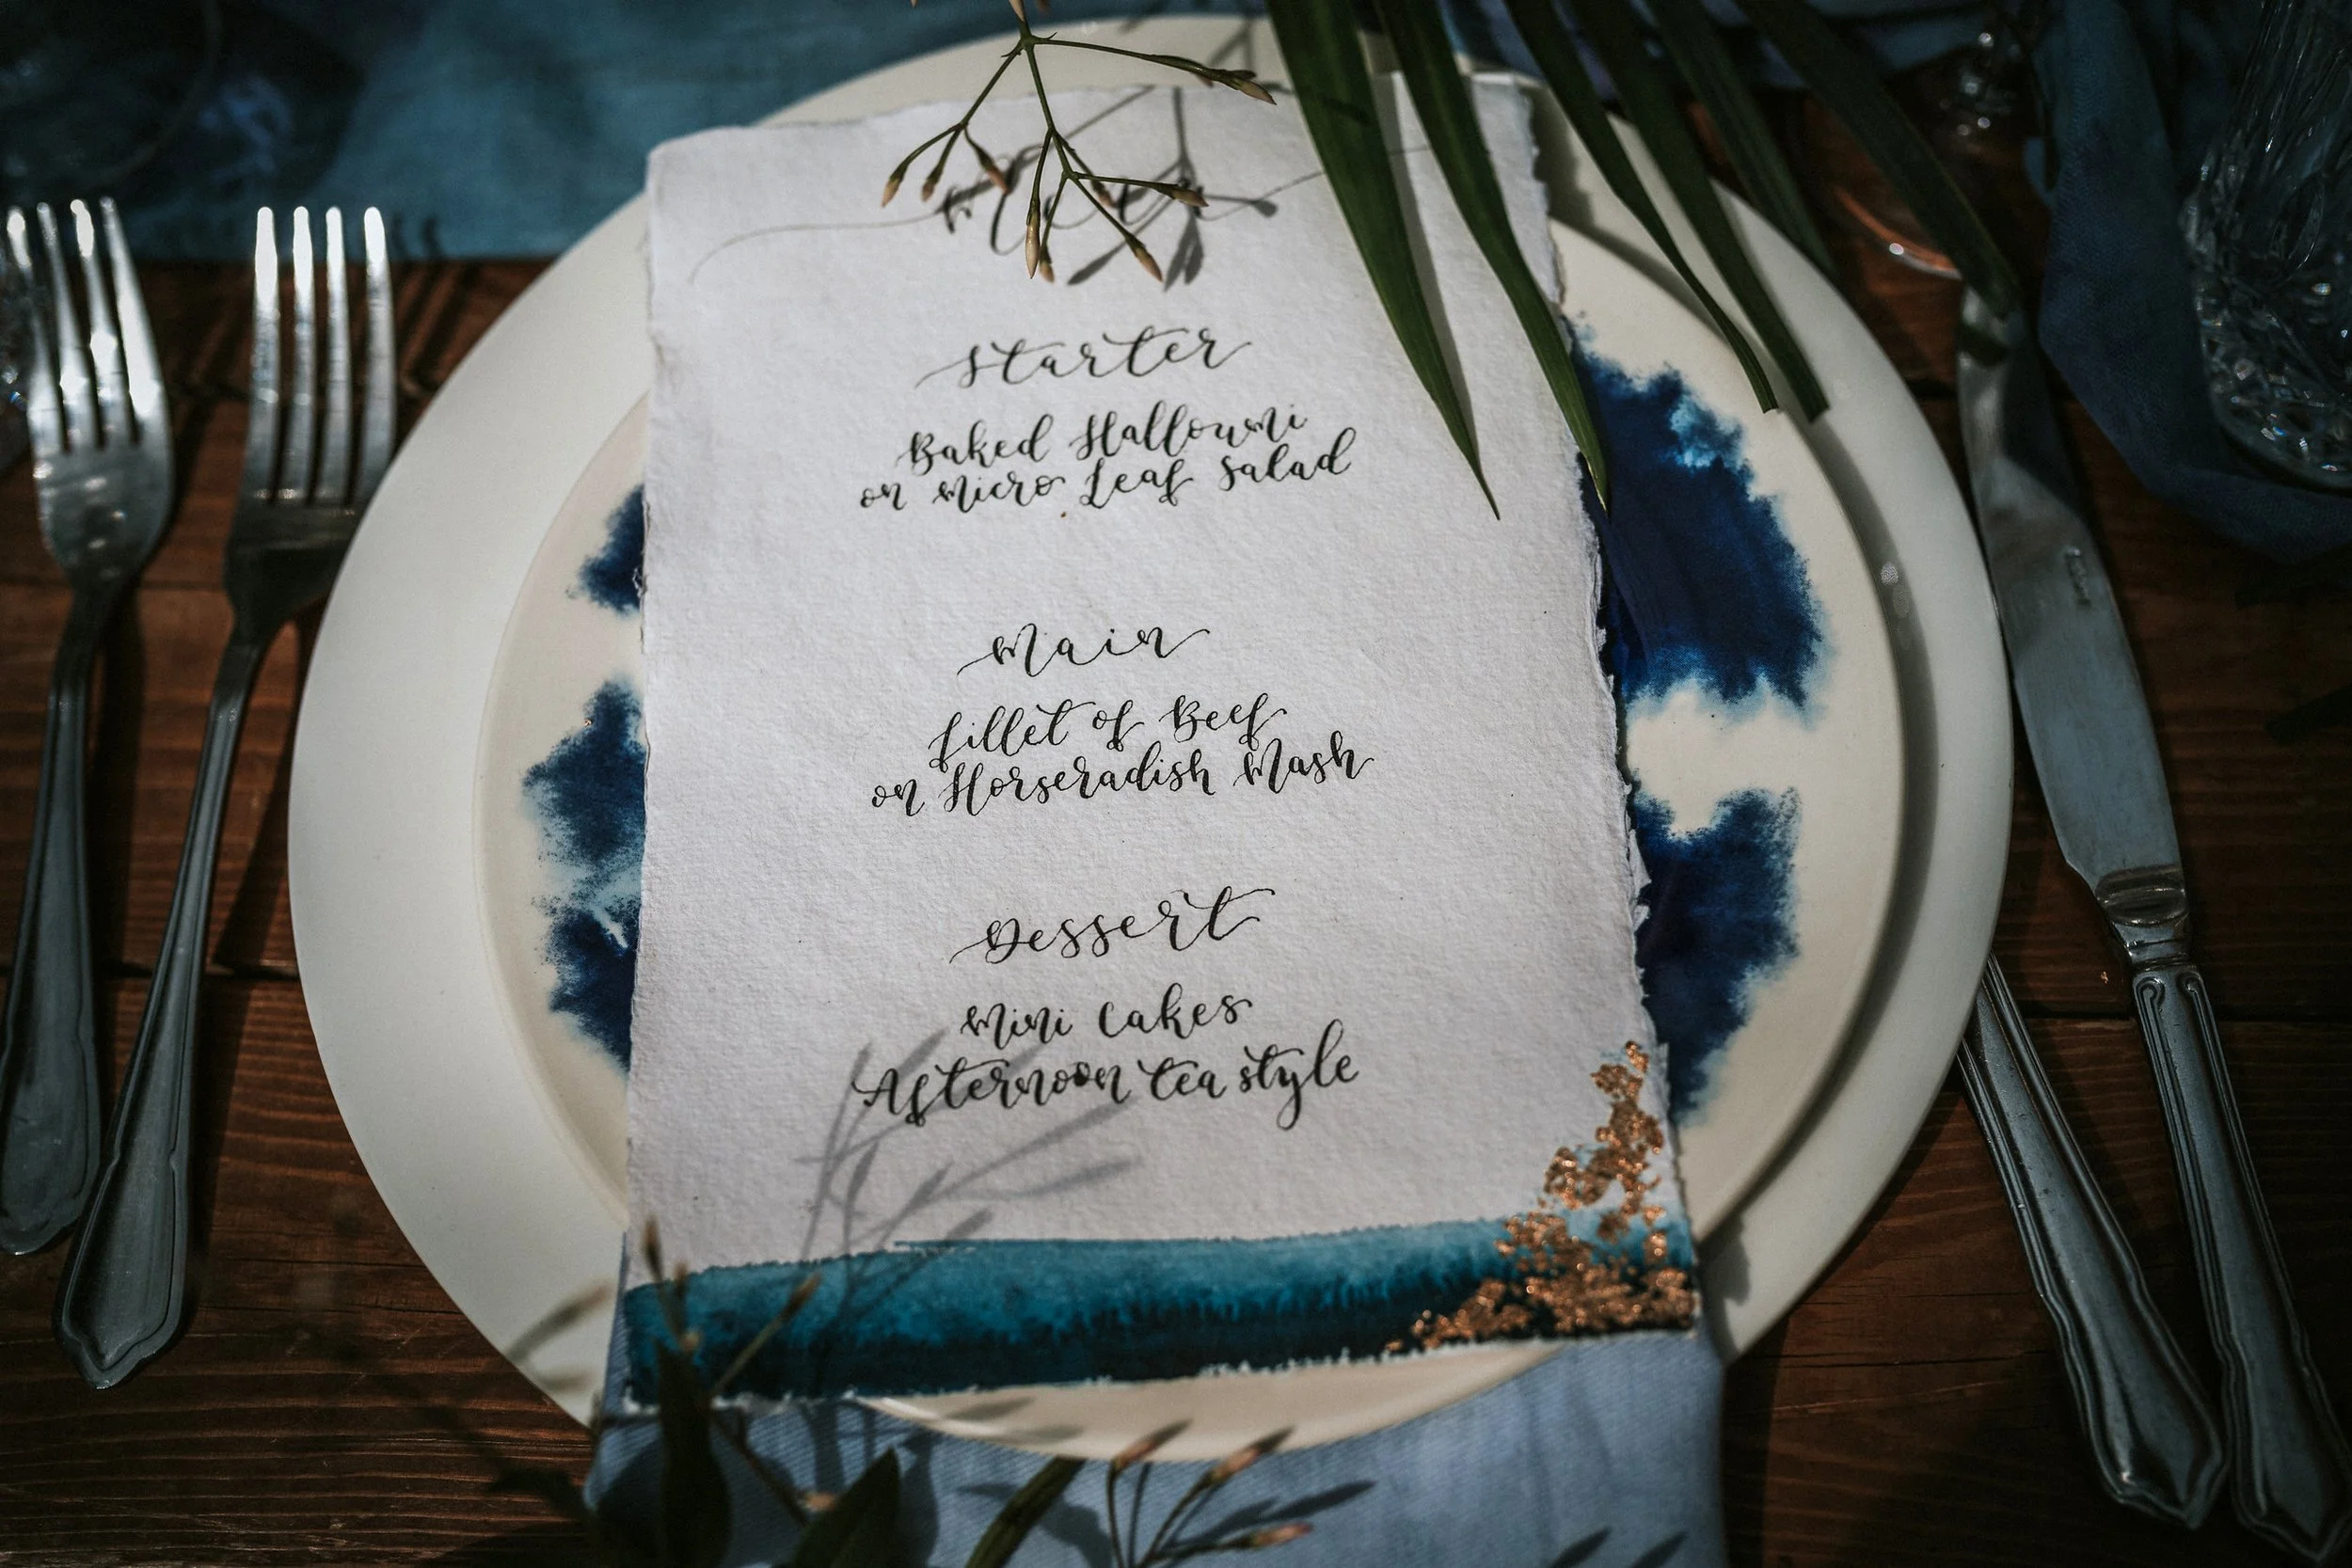 Starter
Baked Halloumi
on Micro Leaf Salad
Main
fillet of Beef
on Horseradish Mash
Dessert
Mini Cakes
Afternoon tea style